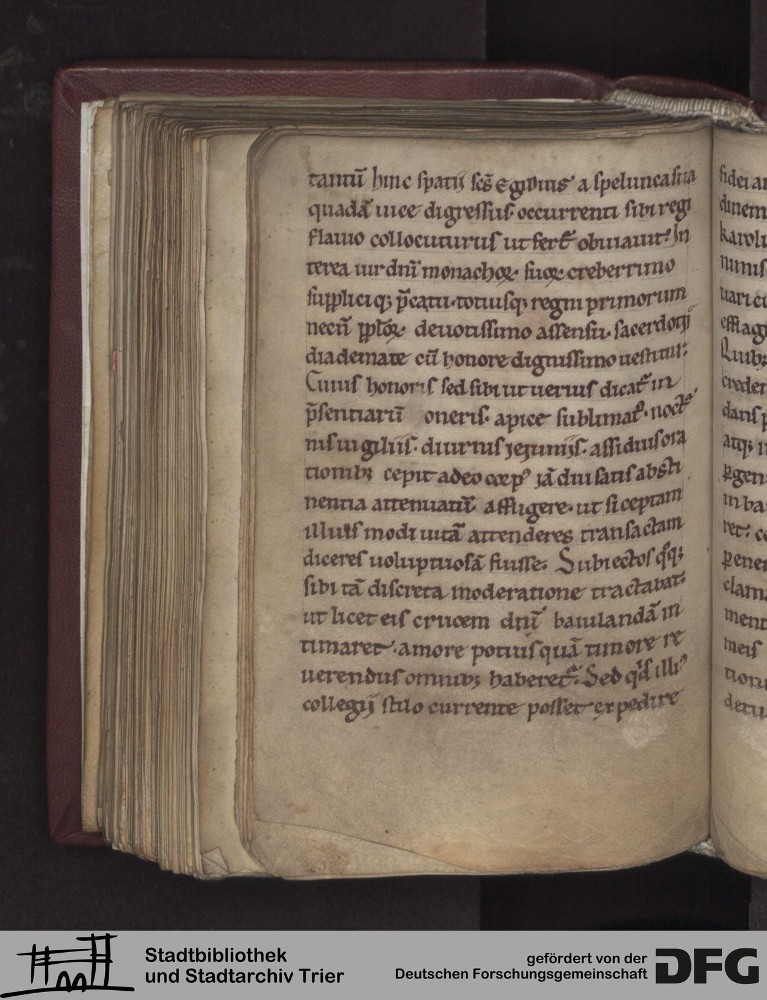 tantū hinc spatij scs̄ egidius a spelunca sua
quadā uice digressus· occurrenti sibi regi
flauio collocuturus ut fert᷑ obuiauit· In
terea uir dn̄i monachoꝝ suoꝝ creberrimo
supplici qꝫ p̄catu· totiusqꝫ regni primorum
necū pp̄ł̄oꝝ deuotissimo assensu· sacerdotij
diademate cū honore dignissimo uestitur·
Cuius honoris sed sibi ut uerius dicat᷑ in
p̄sentiarū oneris· apice sublimat᷑· noct᷑
nis uigiliis· diurnis ieiunijs· assiduis ora
tionibꝫ cepit adeo corpꝰ iā diu satis absti
nentia attenuatū affligere· ut si ceptam
illius modi uitā attenderes transactam
diceres uoluptuosā fuisse· Subiectos qͦsqꝫ
sibi tā discreta moderatione tractabat·
ut licet eis crucem dn̄i baiulandā in
timaret· amore potius quā timore re
uerendus omnibꝫ haberet᷑· Sed qd̄ illiꝰ
collegij stilo currente posset expedire
fidei
dinem
karolu
nimis
uari
efflag
Quibꝫ
creder
dans
atqꝫ
in ba
ret·
clama
ment
meis
tion
Stadtbibliothek
und Stadtarchiv Trier
gefördert von der
Deutschen Forschungsgemeinschaft
DFG